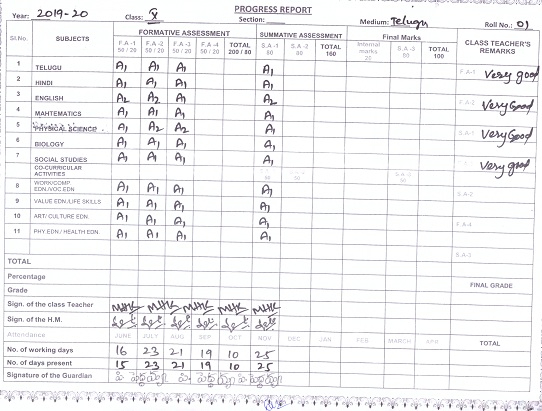 PROGRESS REPORT
Year: 2019-20 Class: X Section: Medium: Telugu Roll No.: 01
Sl.No. SUBJECTS FORMATIVE ASSESSMENT SUMMATIVE ASSESSMENT Final Marks CLASS TEACHER'S REMARKS
F.A -1 50 / 20 F.A -2 50 / 20 F.A -3 50 / 20 F.A -4 50 / 20 TOTAL 200 / 80 S.A -1 80 S.A -2 80 TOTAL 160 Internal marks 20 S.A -3 80 TOTAL 100
1 TELUGU A1 A1 A1 A1 F.A-1 Very good
2 HINDI A1 A1 A1 A1
3 ENGLISH A2 A2 A1 A2 F.A-2 Very Good
4 MAHTEMATICS A1 A1 A1 A1
5 PHYSICAL SCIENCE A1 A2 A2 A1 S.A-1 Very Good
6 BIOLOGY A1 A1 A1 A1
7 SOCIAL STUDIES A1 A1 A1 A1 Very good
CO-CURRICULAR ACTIVITIES
8 WORK/COMP. EDN./VOC.EDN A1 A1 A1 A1 S.A-2
9 VALUE EDN./LIFE SKILLS A1 A1 A1 A1
10 ART/ CULTURE EDN. A1 A1 A1 A1 F.A-4
11 PHY.EDN / HEALTH EDN. A1 A1 A1 A1
S.A-3
TOTAL
Percentage FINAL GRADE
Grade
Sign. of the class Teacher MHK MHK MHK MHK MHK MHK
Sign. of the H.M.
Attendance JUNE JULY AUG SEP OCT NOV DEC JAN FEB MARCH APR TOTAL
No. of working days 16 23 21 19 10 25
No. of days present 15 23 21 19 10 25
Signature of the Guardian